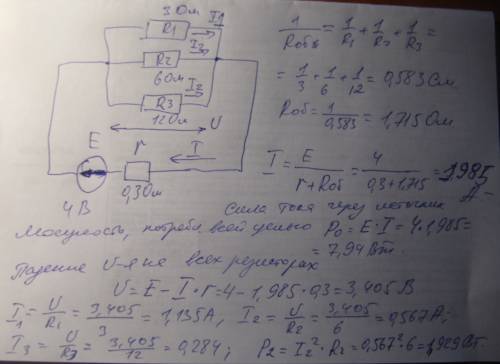 3 Ом
R1
I1
R2
I2
6 Ом
R3
I2
12 Ом
U
E
r
I
0,3 Ом
4 В
1/Rоб = 1/R1 + 1/R2 + 1/R3 =
= 1/3 + 1/6 + 1/12 = 0,583 См
Rоб = 1/0,583 = 1,715 Ом
I = E/(r + Rоб) = 4/(0,3 + 1,715) = 1,985 А –
Сила тока через источник
Мощность, потребл. всей цепью P0 = E · I = 4 · 1,985 =
= 7,94 Вт.
Падение U-я на всех резисторах
U = E – I · r = 4 – 1,985 · 0,3 = 3,405 В
I1 = U/R1 = 3,405/3 = 1,135 А, I2 = U/R2 = 3,405/6 = 0,567 А;
I3 = U/R3 = 3,405/12 = 0,284; P2 = I2² · R2 = 0,567² · 6 = 1,929 Вт